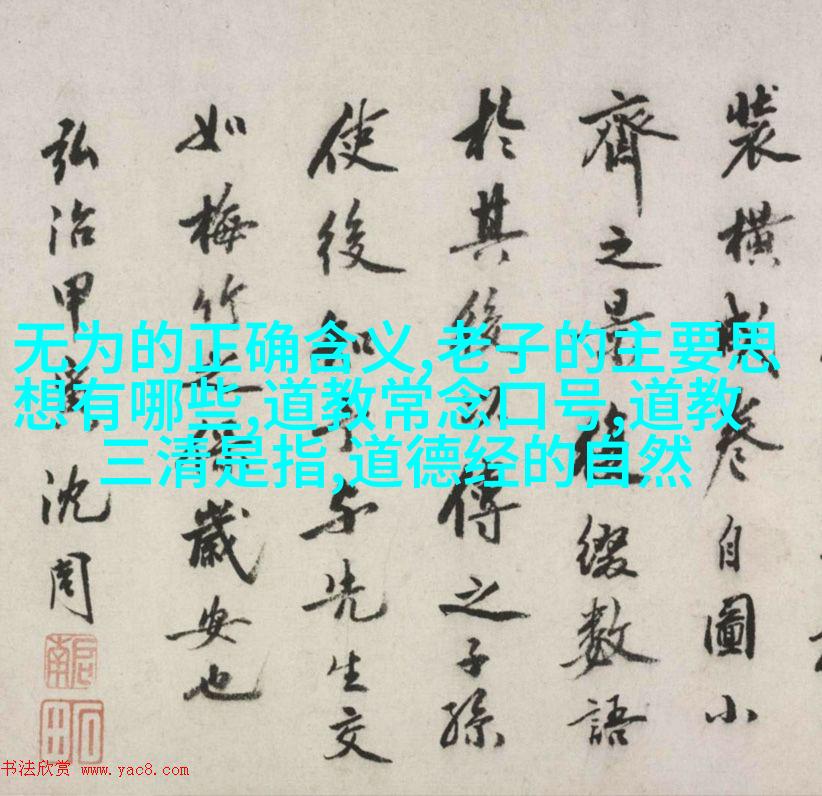 裝橫成卷自圖小
齊之景後綴數語
於其後以傳之子孫
使後知予与先生交
如梅竹歲安也
弘治甲寅沈周
啓南
石田
无为的正确含义,老子的主要思
想有哪些,道教常念口号,道教
三清是指,道德经的自然
书法欣赏 www.yac8.com